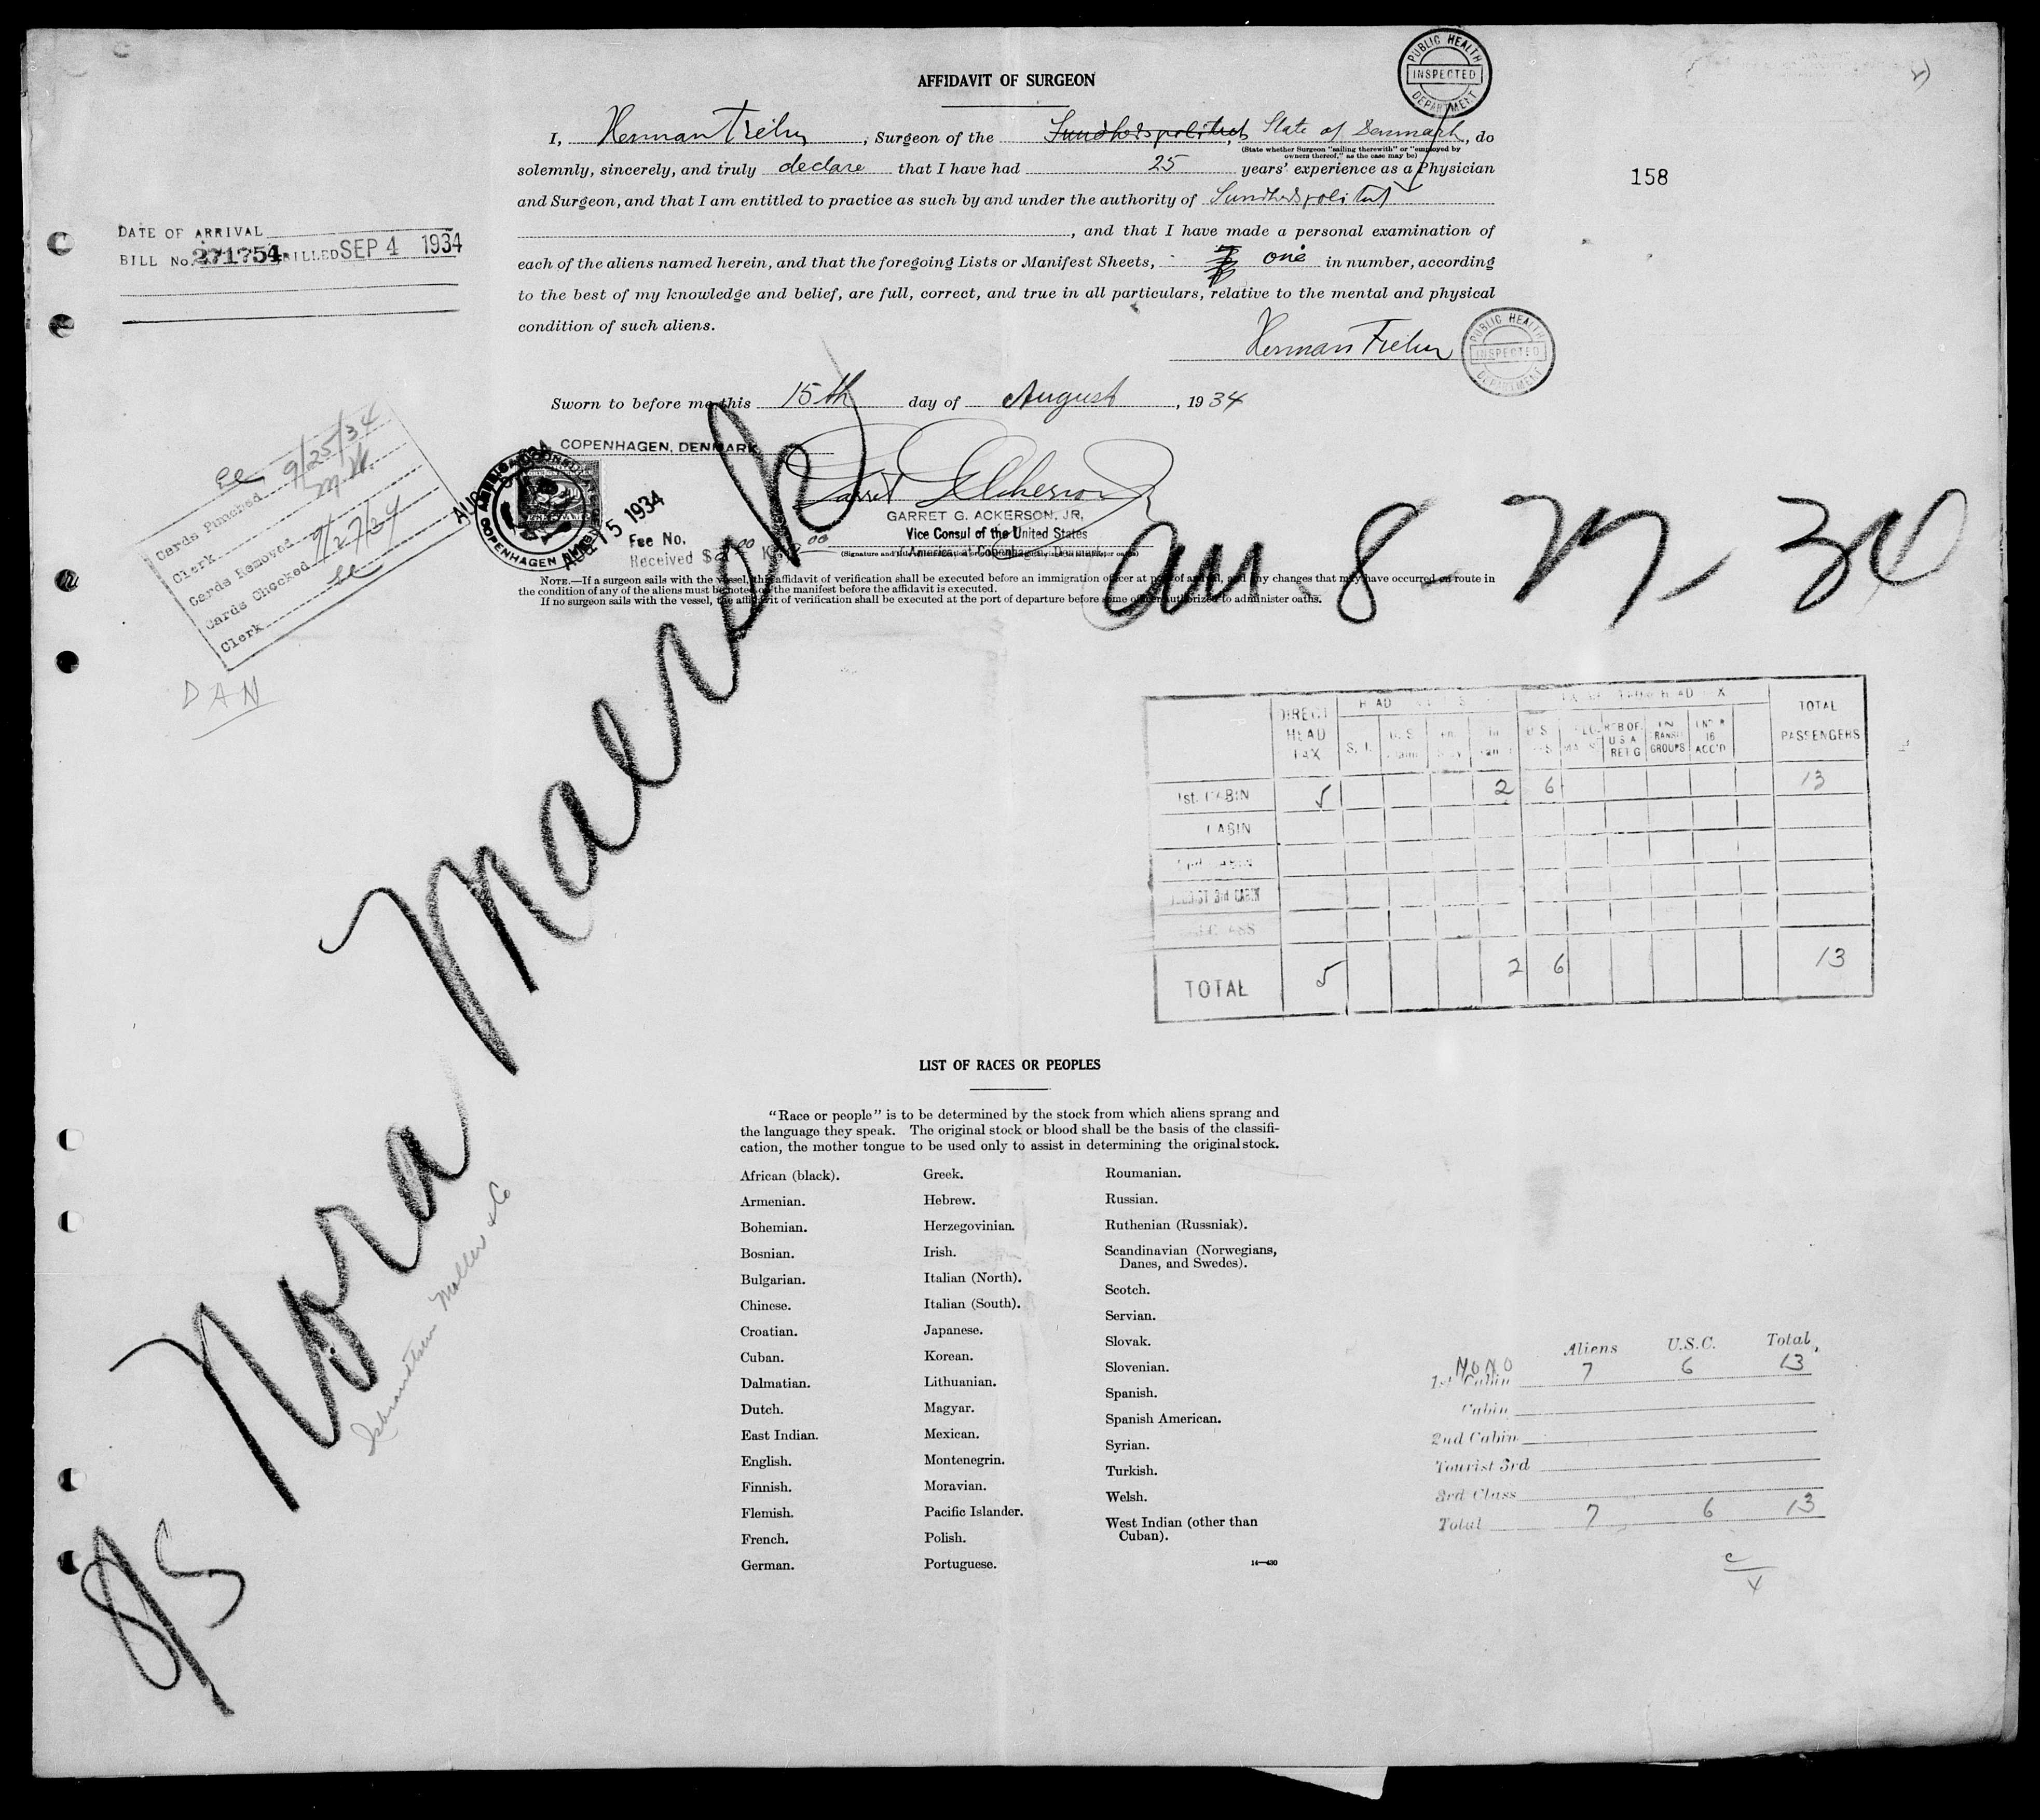 AFFIDAVIT OF SURGEON
PUBLIC HEALTH
INSPECTED
DEPARTMENT
I, Herman , Surgeon of the , State of Denmark, do
(State whether Surgeon "sailing therewith" or "employed by
owners thereof," as the case may be)
solemnly, sincerely, and truly declare that I have had 25 years' experience as a Physician
158
and Surgeon, and that I am entitled to practice as such by and under the authority of
, and that I have made a personal examination of
DATE OF ARRIVAL
BILL No. 271754 BILLED SEP 4 1934
each of the aliens named herein, and that the foregoing Lists or Manifest Sheets, one in number, according
to the best of my knowledge and belief, are full, correct, and true in all particulars, relative to the mental and physical
condition of such aliens.
Herman
PUBLIC HEALTH
INSPECTED
DEPARTMENT
Sworn to before me this 15th day of August, 1934
COPENHAGEN, DENMARK
COPENHAGEN
AUG 15 1934
GARRET G. ACKERSON, JR,
Vice Consul of the United States
of America, at Copenhagen, Denmark
Fee No.
Received $
Cards Punched 9/25/34
Clerk
Cards Removed
Cards Checked 9/27/34
Clerk
DAN
NOTE.—If a surgeon sails with the vessel, this affidavit of verification shall be executed before an immigration officer at port of arrival, and any changes that may have occurred en route in
the condition of any of the aliens must be noted on the manifest before the affidavit is executed.
If no surgeon sails with the vessel, the affidavit of verification shall be executed at the port of departure before some officer authorized to administer oaths.
Nora Maersk
DIRECT HEAD TAX
S. I.
REB OF U S A RET G
GROUPS
16 ACC'D
TOTAL PASSENGERS
1st. CABIN 5 2 6 13
CABIN
3rd CABIN
TOTAL 5 2 6 13
LIST OF RACES OR PEOPLES
"Race or people" is to be determined by the stock from which aliens sprang and
the language they speak. The original stock or blood shall be the basis of the classifi-
cation, the mother tongue to be used only to assist in determining the original stock.
African (black).
Armenian.
Bohemian.
Bosnian.
Bulgarian.
Chinese.
Croatian.
Cuban.
Dalmatian.
Dutch.
East Indian.
English.
Finnish.
Flemish.
French.
German.
Greek.
Hebrew.
Herzegovinian.
Irish.
Italian (North).
Italian (South).
Japanese.
Korean.
Lithuanian.
Magyar.
Mexican.
Montenegrin.
Moravian.
Pacific Islander.
Polish.
Portuguese.
Roumanian.
Russian.
Ruthenian (Russniak).
Scandinavian (Norwegians,
Danes, and Swedes).
Scotch.
Servian.
Slovak.
Slovenian.
Spanish.
Spanish American.
Syrian.
Turkish.
Welsh.
West Indian (other than
Cuban).
14—430
Moller & Co
Aliens U.S.C. Total
1st Cabin 7 6 13
Cabin
2nd Cabin
Tourist 3rd
3rd Class
Total 7 6 13